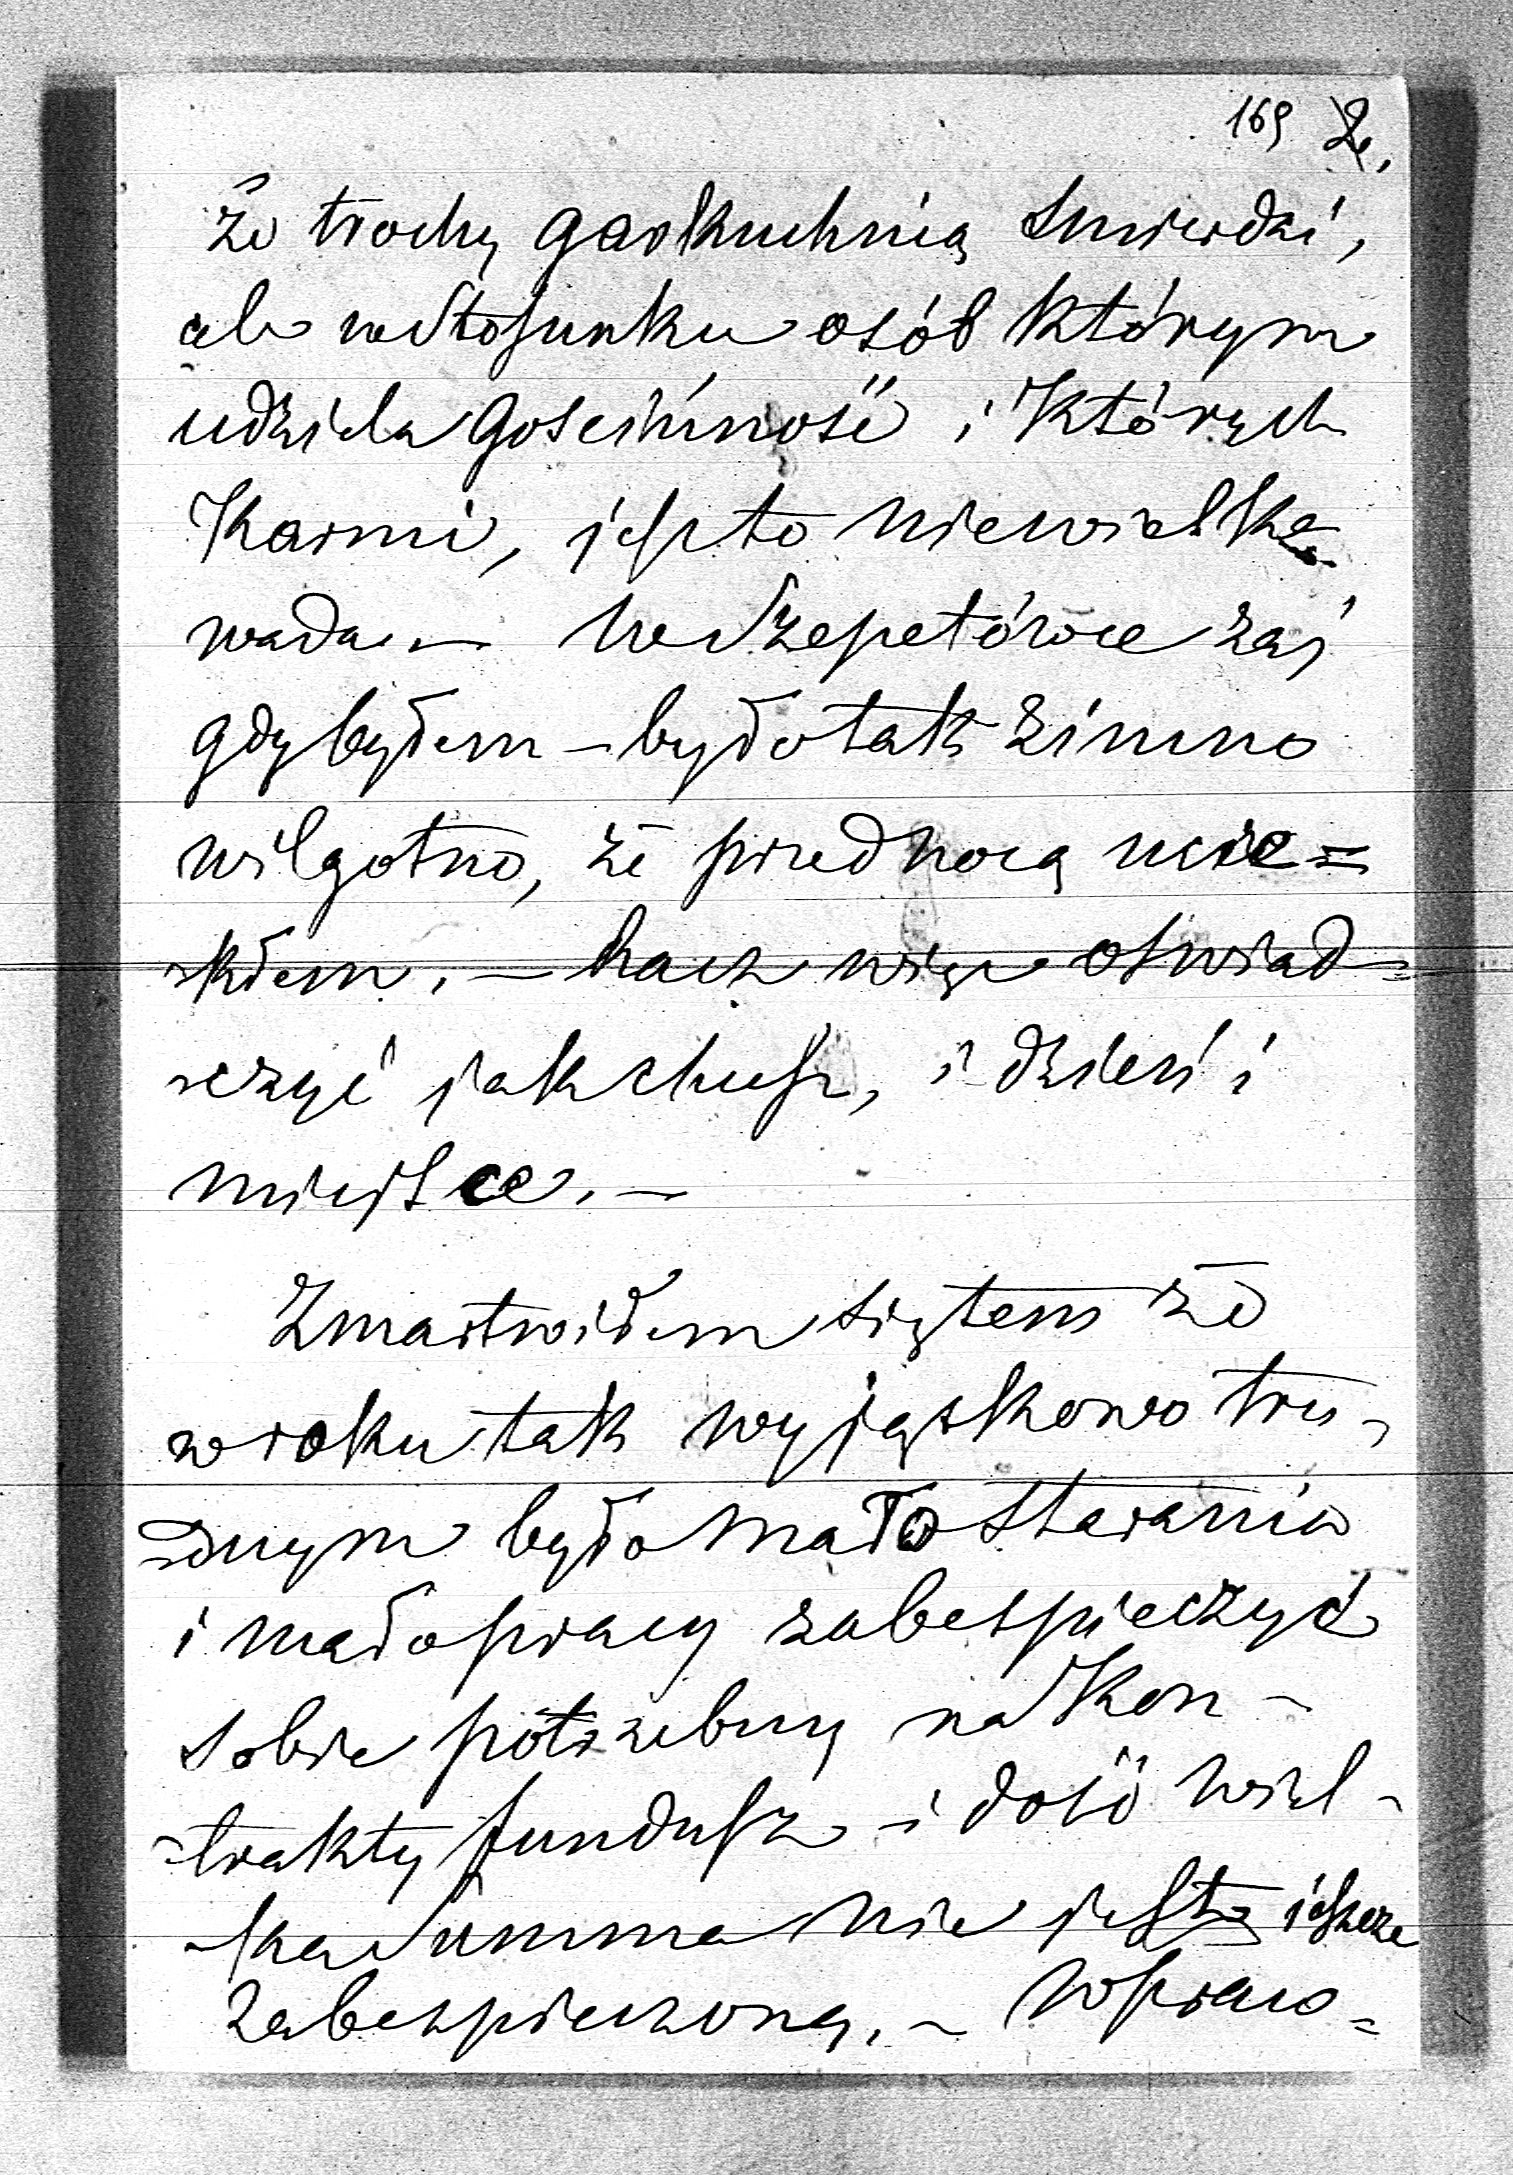 169 2.
że trochę garkuchnią smierdzi,
ale w stosunku osób którym
udziela gościnność i których
karmi, jest to niewielka
wada. — W Szepetówce zaś
gdy byłem – było tak zimno
wilgotno, że przed nocą ucie=
-kłem. — Racz więc oświad-
-czyć jak chcesz, i dzień i
miejsce. —
Zmartwiłem się tem że
w roku tak wyjątkowo tru-
-dnym było mało starania
i mało pracy zabespieczyć
sobie potrzebny na kon-
-trakty fundusz – i dość wiel-
-ka summa nie jest jeszcze
zabezpieczoną. – Wpraw=